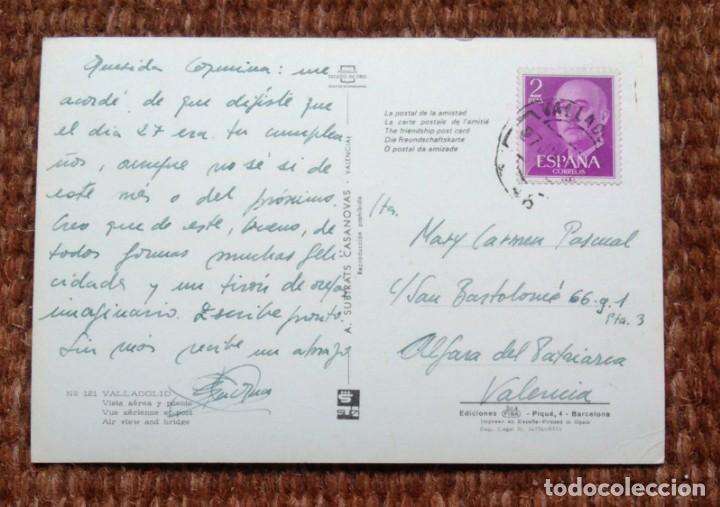 Querida Carmina: me
acordé de que dijiste que
el día 27 era tu cumplea-
ños, aunque no sé si de
este més o del próximo.
Creo que de este, bueno, de
todos formas muchas feli
cidades y un tirón de orejas
imaginario. Escribe pronto.
Sin más recibe un abrazo
Nº 121 VALLADOLID
Vista aérea y puente
Vue aérienne et pont
Air view and bridge
A. SUBIRATS CASANOVAS - VALENCIA
Reproducción prohibida
La postal de la amistad
La carte postale de l'amitié
The friendship post card
Die Freundschaftskarte
O postal da amizade
2
ESPAÑA
CORREOS
VALLADO
Mary Carmen Pascual
c/ San Bartolomé 66-g.1
Pta. 3
Alfara del Patriarca
Valencia
Ediciones FISA - Piqué, 4 - Barcelona
Impreso en España-Printed in Spain
todocoleccion.net